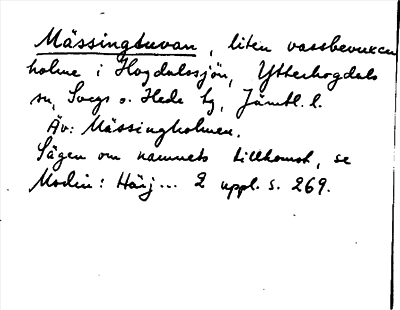 Mässingtuvan, liten vassbevuxen
holme i Hogdalssjön, Ytterhogdals
sn, Svegs o. Hede tg, Jämtl. l.
Äv: Mässingholmen.
Sägen om namnets tillkomst, se
Modin: Härj... 2 uppl. s. 269.